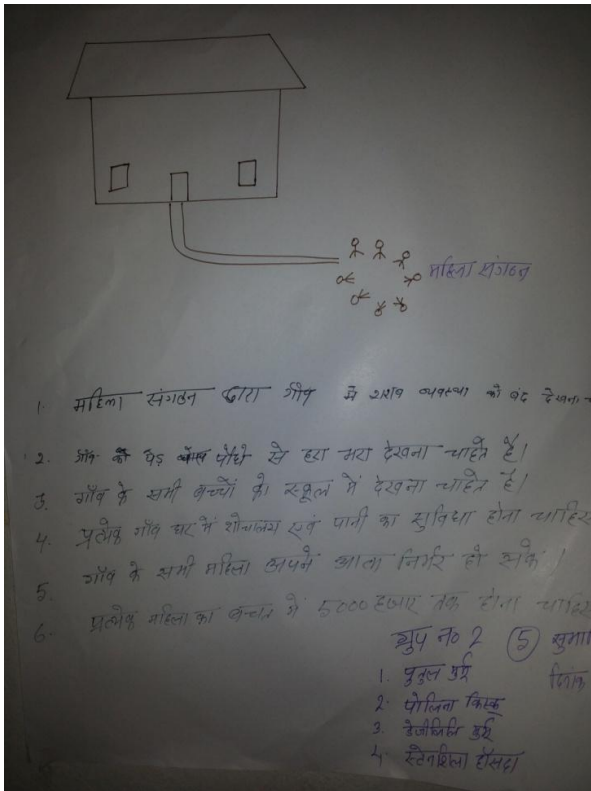 महिला संगठन
1. महिला संगठन द्वारा गाँव मे शराब व्यवस्था को बंद देखना
2. गाँव को पेड़ पौधे से हरा भरा देखना चाहते है।
3. गाँव के सभी बच्चों को स्कूल में देखना चाहते है।
4. प्रत्येक गाँव घर में शौचालय एवं पानी का सुविधा होना चाहिए
5. गाँव के सभी महिला अपने आत्म निर्भर हो सके।
6. प्रत्येक महिला का बचत में 5000 हजार तक होना चाहिए
ग्रुप न० 2 5
1. पुतुल मुर्मू
2. पोलिना किस्कू
3. मुर्मू
4. हाँसदा
दिनांक